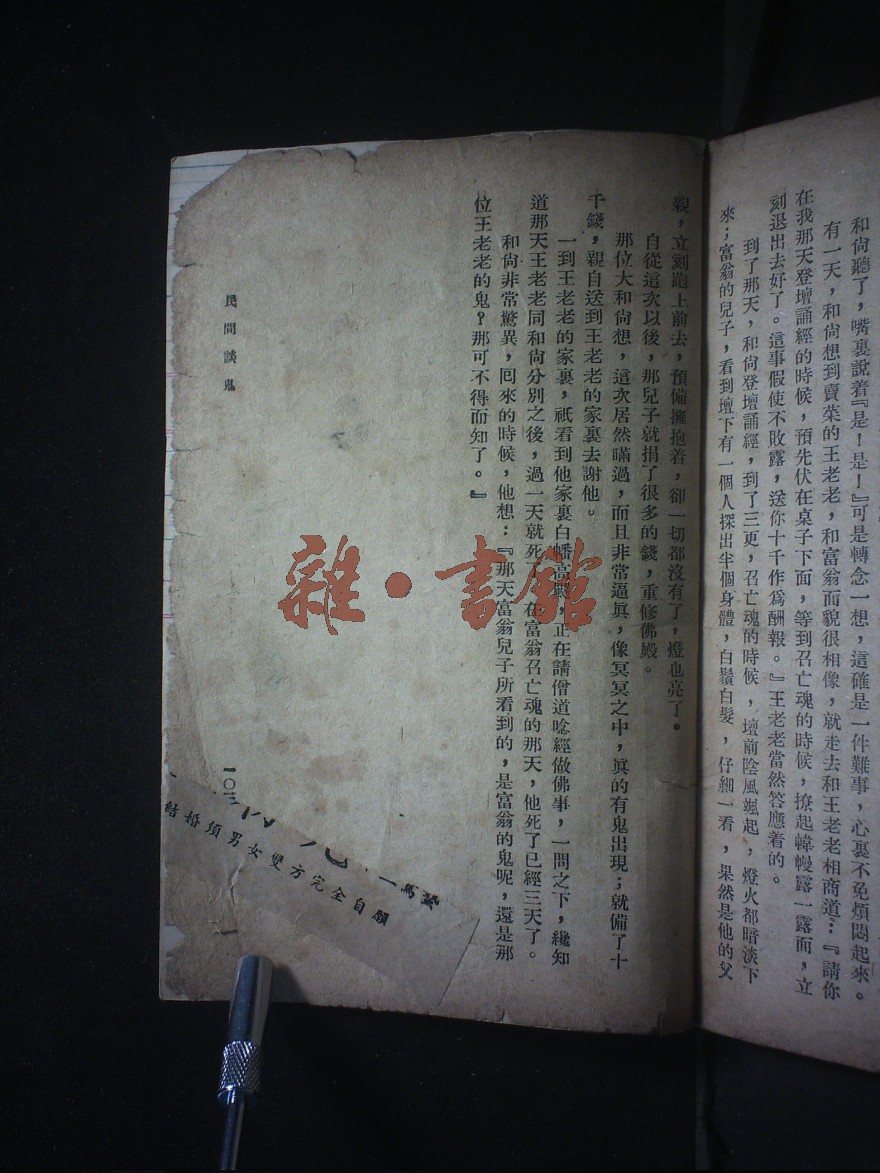 和尙聽了，嘴裏說着『是！是！』可是轉念一想，這確是一件難事，心裏不免煩悶起來。
有一天，和尙想到賣菜的王老老，和富翁面貌很相像，就走去和王老老相商道：『請你
在我那天登壇誦經的時候，預先伏在桌子下面，等到召亡魂的時候，撩起幃幔露一露面，立
刻退出去好了。這事假使不敗露，送你十千作爲酬報。』王老老當然答應着的。
到了那天，和尙登壇誦經，到了三更，召亡魂的時候，壇前陰風颯起，燈火都暗淡下
來；富翁的兒子，看到壇下有一個人探出半個身體，白鬚白髮，仔細一看，果然是他的父
親，立刻跑上前去，預備擁抱着，卻一切都沒有了，燈也亮了。
自從這次以後，那兒子就捐了很多的錢，重修佛殿。
那位大和尙想，這次居然瞞過，而且非常逼眞，像冥冥之中，眞的有鬼出現；就備了十
千錢，親自送到王老老的家裏去謝他。
一到王老老的家裏，祇看到他家裏白幡高，正在請僧道唸經做佛事，一問之下，纔知
道那天王老老同和尙分別之後，過一天就死，在富翁召亡魂的那天，他死了已經三天了。
和尙非常驚異，回來的時候，他想：『那天富翁兒子所看到的，是富翁的鬼呢，還是那
位王老老的鬼？那可不得而知了。』
民間談鬼
一〇三
雜·書館
結婚須男女雙方完全自願